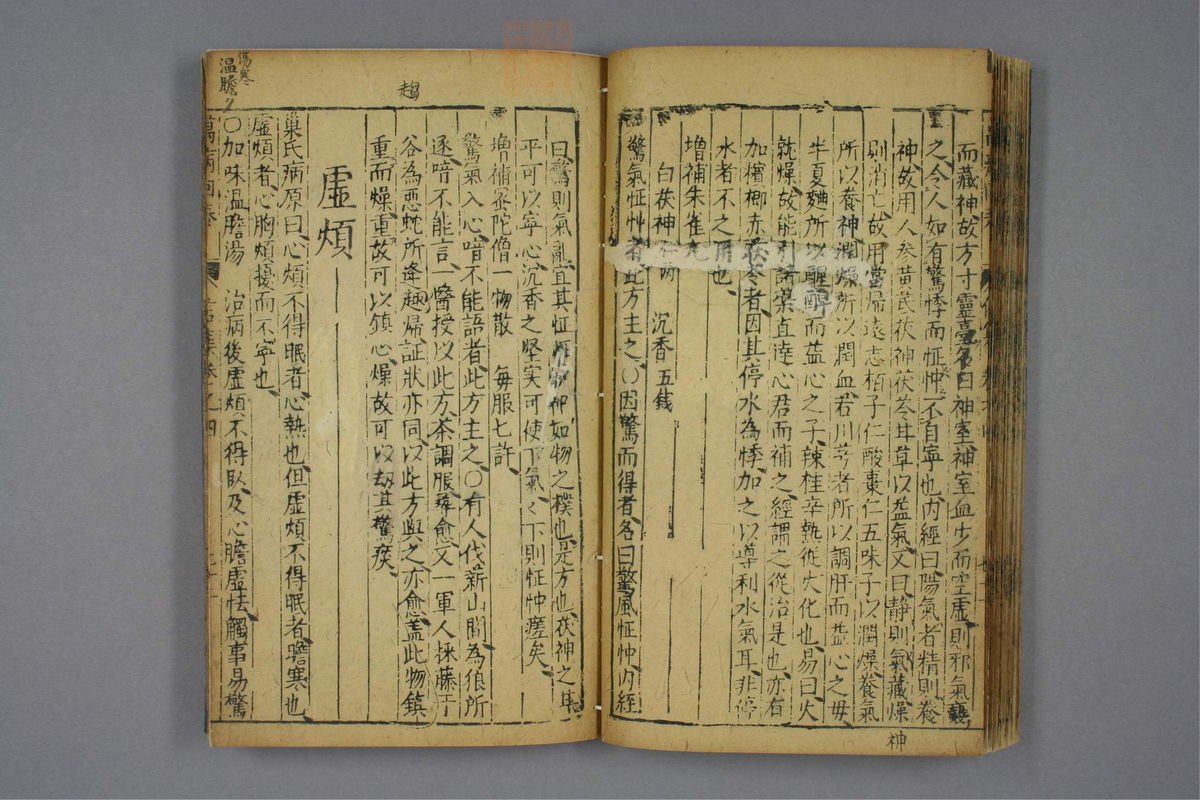 而藏神故方寸靈臺名曰神室神室血少而空虛則邪氣襲
之令人如有驚悸而怔忡不自寧也內經曰陽氣者精則養
神故用人參黃芪茯神茯苓甘草以益氣又曰靜則氣藏燥
則消亡故用當歸遠志栢子仁酸棗仁五味子以潤燥養氣
所以養神潤燥所以潤血若川芎者所以調肝而益心之母
半夏麯所以醒脾而益心之子辣桂辛熱從火化也易曰火
就燥故能引諸藥直達心君而補之經謂之從治是也亦有
加檳榔赤茯苓者因其停水為悸加之以導利水氣耳非停
水者不之用也
增補朱雀丸
白茯神 沉香五錢
驚氣怔忡者此方主之〇因驚而得者名曰驚風怔忡內經
神
曰驚則氣亂宜其怔忡如物之撲也是方也茯神之
平可以寧心沉香之堅實可使下氣〻下則怔忡瘥矣
增補密陀僧一物散 每服七許
驚氣入心喑不能語者此方主之〇有人伐薪山間為狼所
逐喑不能言一醫授以此方茶調服尋愈又一軍人採藤于
谷為惡蛇所逢趨歸証狀亦同以此方與之亦愈盖此物鎮
重而燥重故可以鎮心燥故可以劫其驚痰
趨
虛煩
巢氏病原曰心煩不得眠者心熱也但虛煩不得眠者膽寒也
虛煩者心胸煩擾而不寧也
〇加味溫膽湯 治病後虛煩不得臥及心膽虛怯觸事易驚
傷寒
温膽